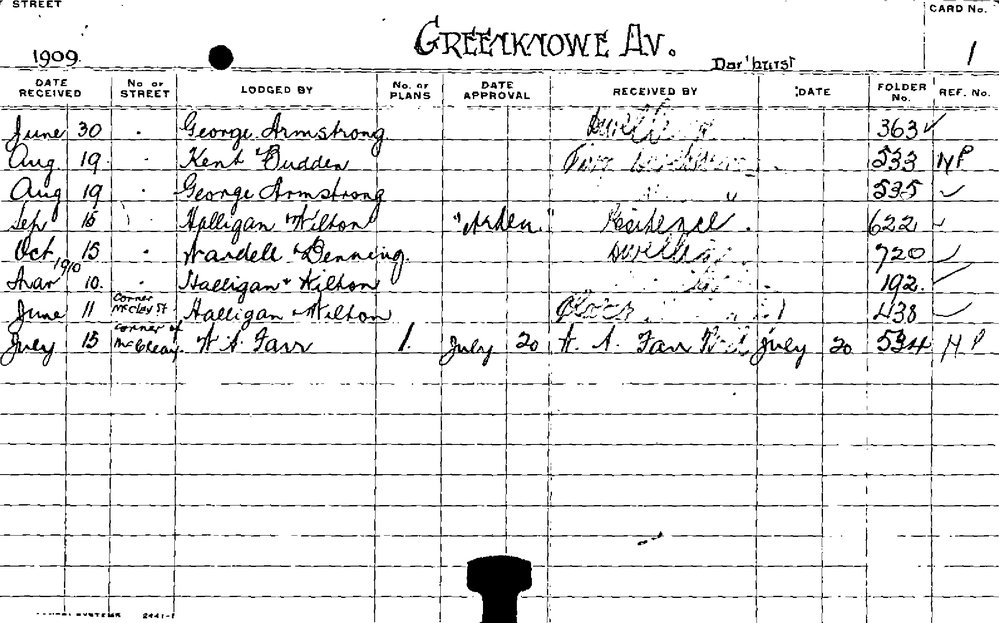 STREET
CARD No.
GREENKNOWE AV.
1909. Dar'hurst 1
DATE RECEIVED No. OF STREET LODGED BY No. OF PLANS DATE APPROVAL RECEIVED BY DATE FOLDER No. REF. No.
June 30 George Armstrong Dwelling 363 ✓
Aug 19 Kent & Budden 533 NP
Aug 19 George Armstrong " 535 ✓
Sep 15 Halligan & Wilton "Arden" Residence 622 ✓
Oct 15 Wardell & Denning. Dwelling 720 ✓
1910
Mar 10. Halligan & Wilton 192. ✓
June 11 Corner McClay St Halligan & Wilton 438 ✓
July 15 Corner of McCleay. H. A. Farr 1. July 20 H. A. Farr July 20 534 NP
2441-1